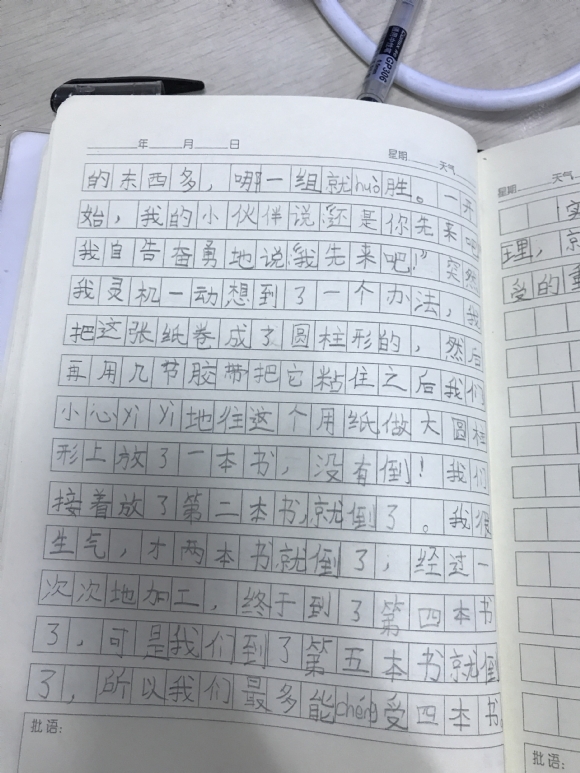 GP306
年 月 日 星期 天气
的东西多，哪一组就huò胜。一开
始，我的小伙伴说“还是你先来吧
我自告奋勇地说“我先来吧！”突然
我灵机一动想到了一个办法，我
把这张纸卷成了圆柱形的，然后
再用几节胶带把它粘住之后我们
小心yì yì地往这个用纸做大圆柱
形上放了一本书，没有倒！我们
接着放了第二本书，就倒了。我很
生气，才两本书就倒了；经过一
次次地加工，终于到了第四本书
了，可是我们到了第五本书就倒
了，所以我们最多能chéng受四本书。
批语：
星期 天气
实
理，京
受的重
批语：